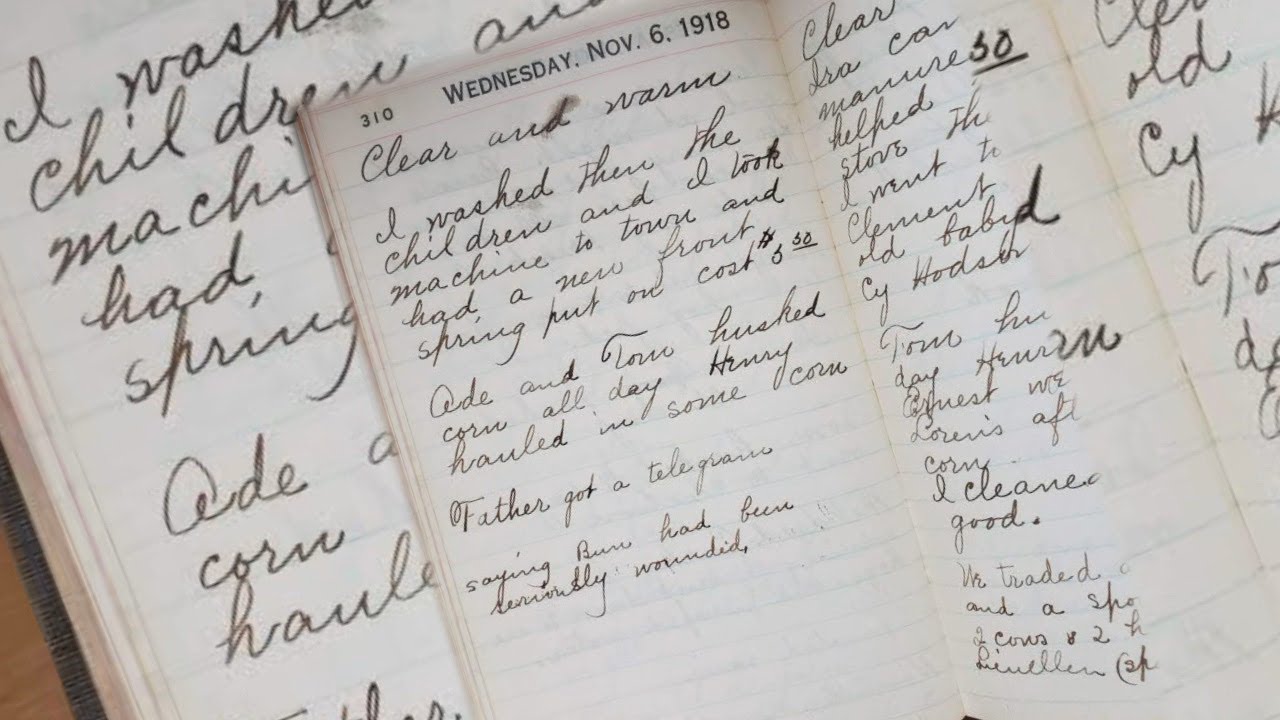 310
WEDNESDAY, NOV. 6, 1918
Clear and warm
I washed then the
children and I took
machine to town and
had, a new front
spring put on cost $5 50
Ade and Tom husked
corn all day Henry
hauled in some corn
Father got a telegram
saying Bun had been
seriously wounded,
Clear
Ira
manure 50
helped
stove th
I went to
Clement
old baby
Cy Hodson
Tom hu
day Henr
Ernest we
Loren's aft
corn
I cleaned
good.
We traded
and a spo
2 cows & 2 h
(sp
I washed
children and
machi
had,
spring
Ade a
corn
haule
Father
old
Cy H
Tom